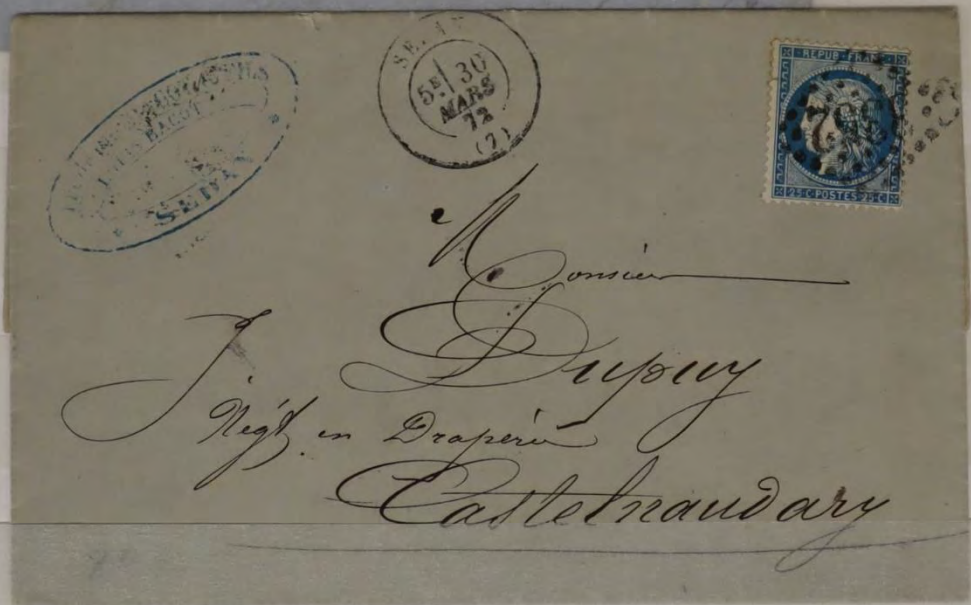 SEDAN
5E 30
MARS
72
(7)
REPUB FRANC
25 C POSTES 25 C
BACOT
SEDAN
Monsieur
J. Dupuy
Négt. en Draperie
Castelnaudary